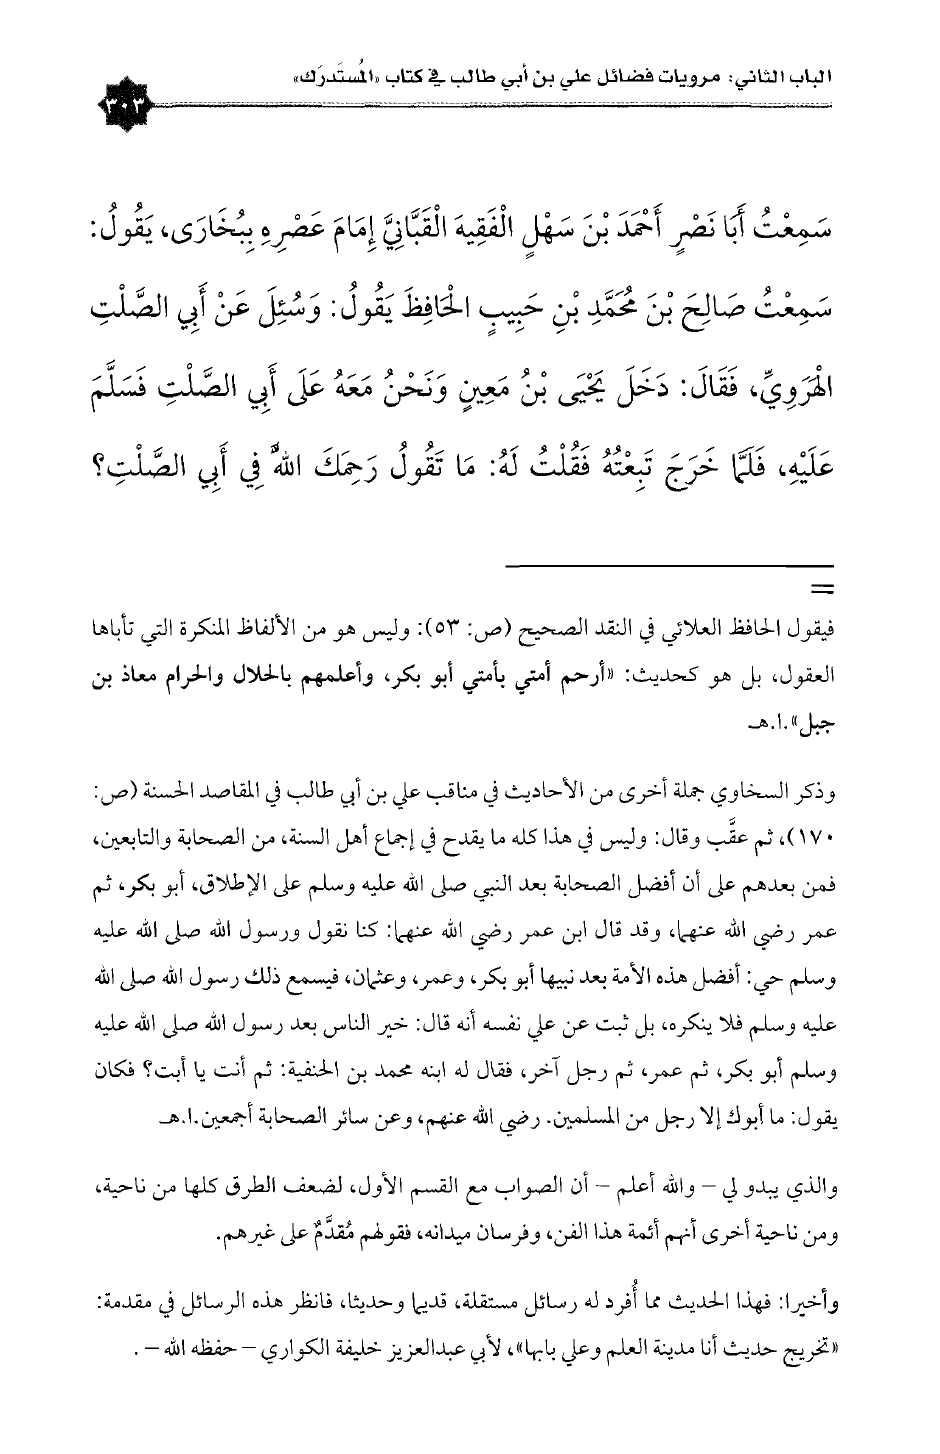 الباب الثاني: مرويات فضائل علي بن أبي طالب في كتاب «المُستَدرَك»
٣٠٣
سَمِعْتُ أَبَا نَصْرٍ أَحْمَدَ بْنَ سَهْلٍ الْفَقِيهَ الْقَبَّانِيَّ إِمَامَ عَصْرِهِ بِبُخَارَى، يَقُولُ:
سَمِعْتُ صَالِحَ بْنَ مُحَمَّدِ بْنِ حَبِيبٍ الْحَافِظَ يَقُولُ: وَسُئِلَ عَنْ أَبِي الصَّلْتِ
الْهَرَوِيِّ، فَقَالَ: دَخَلَ يَحْيَى بْنُ مَعِينٍ وَنَحْنُ مَعَهُ عَلَى أَبِي الصَّلْتِ فَسَلَّمَ
عَلَيْهِ، فَلَمَّا خَرَجَ تَبِعْتُهُ فَقُلْتُ لَهُ: مَا تَقُولُ رَحِمَكَ اللهُ فِي أَبِي الصَّلْتِ؟
=
فيقول الحافظ العلائي في النقد الصحيح (ص: ٥٣): وليس هو من الألفاظ المنكرة التي تأباها
العقول، بل هو كحديث: «أرحم أمتي بأمتي أبو بكر، وأعلمهم بالحلال والحرام معاذ بن
جبل».ا.هـ
وذكر السخاوي جملة أخرى من الأحاديث في مناقب علي بن أبي طالب في المقاصد الحسنة (ص:
١٧٠)، ثم عقَّب وقال: وليس في هذا كله ما يقدح في إجماع أهل السنة، من الصحابة والتابعين،
فمن بعدهم على أن أفضل الصحابة بعد النبي صلى الله عليه وسلم على الإطلاق، أبو بكر، ثم
عمر رضي الله عنهما، وقد قال ابن عمر رضي الله عنهما: كنا نقول ورسول الله صلى الله عليه
وسلم حي: أفضل هذه الأمة بعد نبيها أبو بكر، وعمر، وعثمان، فيسمع ذلك رسول الله صلى الله
عليه وسلم فلا ينكره، بل ثبت عن علي نفسه أنه قال: خير الناس بعد رسول الله صلى الله عليه
وسلم أبو بكر، ثم عمر، ثم رجل آخر، فقال له ابنه محمد بن الحنفية: ثم أنت يا أبت؟ فكان
يقول: ما أبوك إلا رجل من المسلمين. رضي الله عنهم، وعن سائر الصحابة أجمعين.ا.هـ
والذي يبدو لي – والله أعلم – أن الصواب مع القسم الأول، لضعف الطرق كلها من ناحية،
ومن ناحية أخرى أنهم أئمة هذا الفن، وفرسان ميدانه، فقولهم مُقدَّمٌ على غيرهم.
وأخيرا: فهذا الحديث مما أُفرد له رسائل مستقلة، قديما وحديثا، فانظر هذه الرسائل في مقدمة:
«تخريج حديث أنا مدينة العلم وعلي بابها»، لأبي عبدالعزيز خليفة الكواري – حفظه الله – .